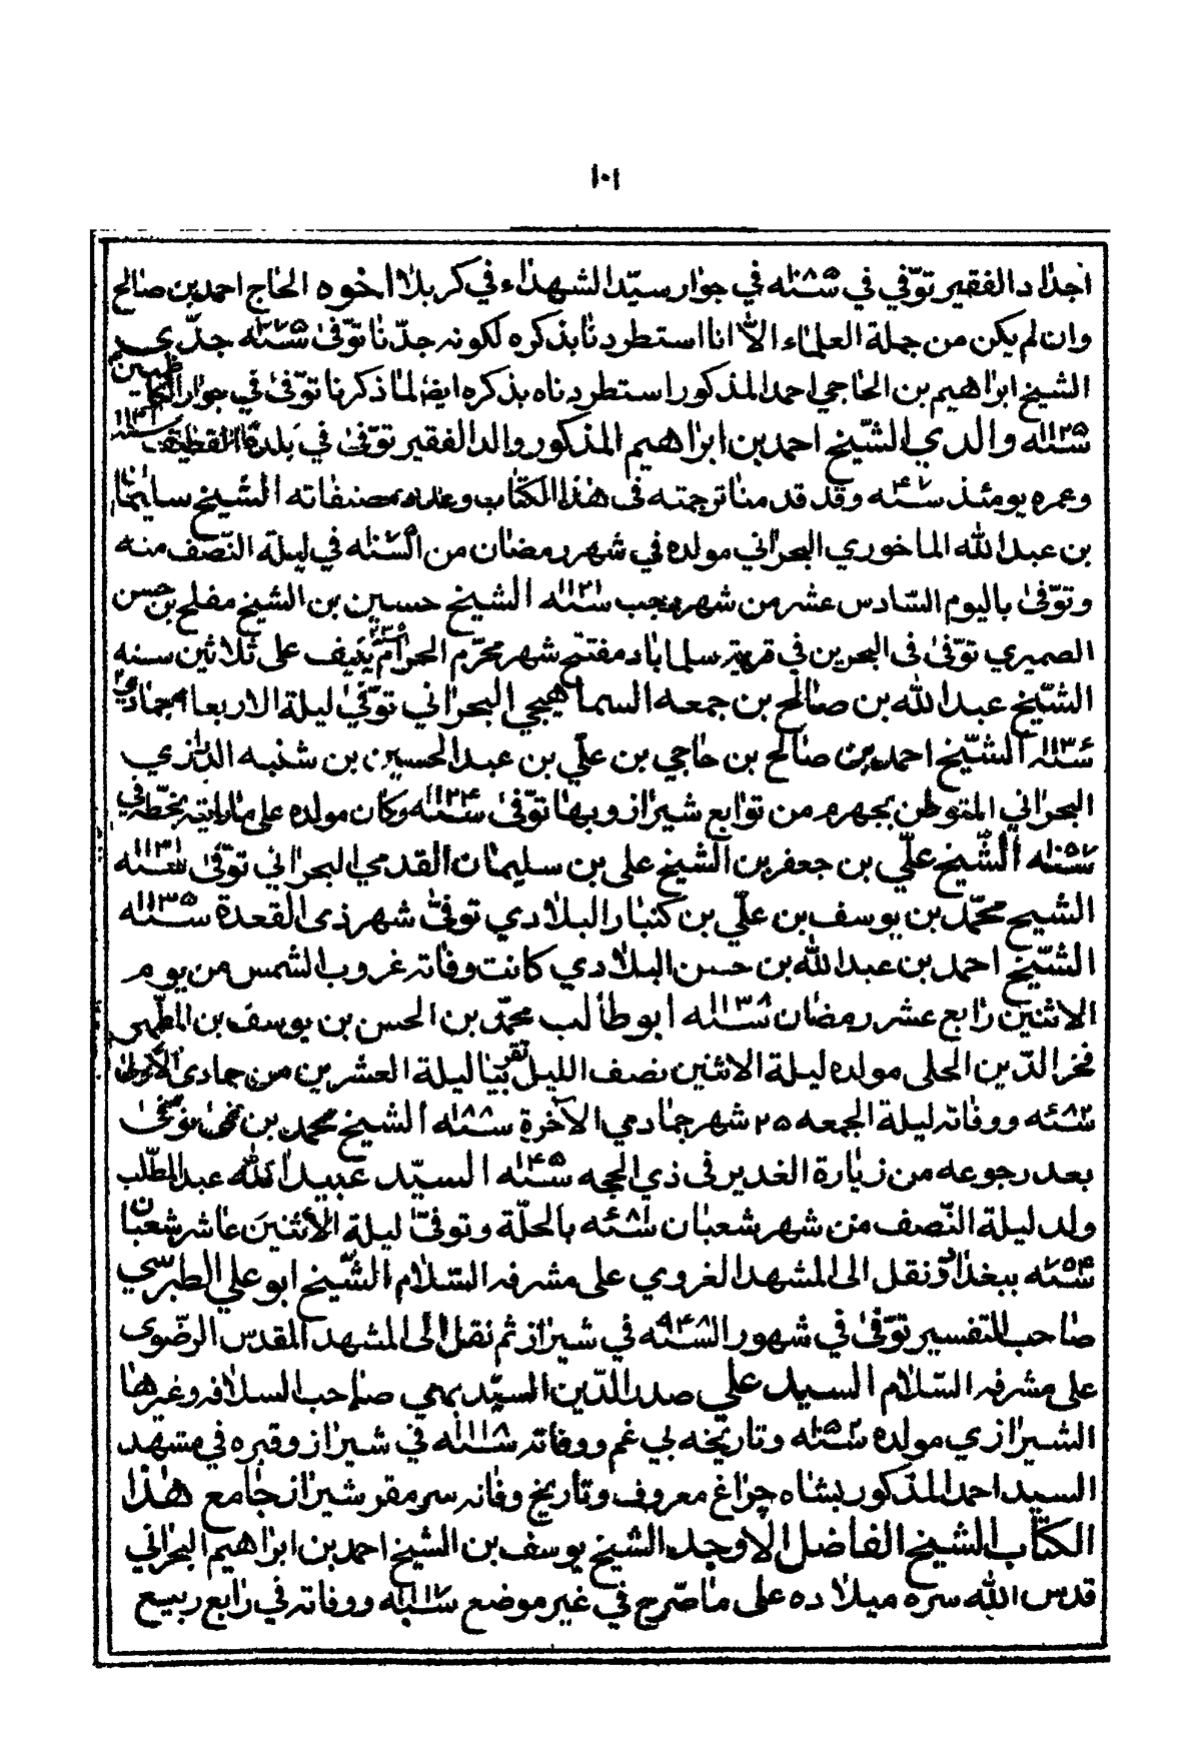 ١٠١
أجداد الفقير توّفي في سنة ١٠٨٥ في جوار سيّد الشهداء في كربلا اخوه الحاج احمد بن صالح
وان لم يكن من جملة العلماء الّا انا استطردنا بذكره لكونه جدّنا توّفى سنة جدّي
الشيخ ابراهيم بن الحاجي احمد المذكور استطردناه بذكره ايضا لما ذكرنا توّفى في جوار الكاظمين
سنة ١١٢٥ والدي الشّيخ احمد بن ابراهيم المذكور والد الفقير توّفى في بلدة القطيف سنة ١١٣١
وعمره يومئذ سنة ٤٧ وقد قدمنا ترجمته فى هذا الكتاب وعددنا مصنفاته الشيخ سليمان
بن عبد الله الماخوري البحراني مولده في شهر رمضان من السنة ١٠٧٥ في ليلة النّصف منه
وتوّفى باليوم السّادس عشر من شهر رجب سنة ١١٢١ الشيخ حسين بن الشيخ مفلح بن حسن
الصميري توّفى فى البحرين في قرية سلماباد مفتتح شهر محرّم الحرام ينيف على ثلاثين سنه
الشّيخ عبد الله بن صالح بن جمعه السماهيجي البحراني توّفي ليلة الاربعا ٩ جمادي
سنة الشّيخ احمد بن صالح بن حاجي بن علّي بن عبد الحسين بن شنبه الدّرازي
البحراني المتوطن بجهرم من توابع شيراز وبها توّفى سنة ١١٢٤ وكان مولده على ما رايته بخطّه في
سنة ١٠٥٧ الشّيخ علّي بن جعفر بن الشّيخ على بن سليمان القدمي البحراني توّفى سنة ١١٣١
الشيخ محمّد بن يوسف بن علّي بن كنبار البلادي توفىّ شهر ذى القعدة سنة ١١٣٥
الشّيخ احمد بن عبد الله بن حسن البلادي كانت وفاته غروب الشمس من يوم
الاثنين رابع عشر رمضان سنة ١١٣٨ ابو طالب محمّد بن الحسن بن يوسف بن المطّهر
فخر الدّين الحلى مولده ليلة الاثنين نصف الليل تقريبا ليلة العشرين من جمادى الأولى
سنة ٦٨٢ ووفاته ليلة الجمعه ٢٥ شهر جمادي الآخرة سنة الشيخ محمد بن
بعد رجوعه من زيارة الغدير فى ذي الحجه سنة السيّد عبيد الله عبد المطّلب
ولد ليلة النّصف من شهر شعبان سنة ٦٨١ بالحلّة وتوفىّ ليلة الأثنين عاشر شعبان
سنة ٧٥٤ ببغداد ونقل الى المشهد الغروي على مشرفه السّلام الشّيخ ابو علي الطبرسّي
صاحب التفسير توّفى في شهور السنة في شيراز ثم نقل الى المشهد المقدس الرضّوى
على مشرفه السّلام السيد علي صدر الدّين السيّد صاحب السلافه وغيرها
الشيرازي مولده سنة ١٠٥٢ وتاريخه بي غم ووفاته سنة ١١١٨ في شيراز وقبره في مشهد
السيد احمد المذكور بشاه چراغ معروف وتاريخ وفاته سر مقر شيراز جامع هذا
الكتاب الشيخ الفاضل الأوحد الشيخ يوسف بن الشيخ احمد بن ابراهيم البحراني
قدس الله سره ميلاده على ما صّرح في غير موضع سنة ووفاته في رابع ربيع